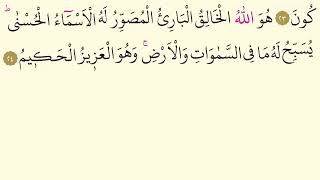 كُونَ ﴿٢٣﴾ هُوَ اللّٰهُ الْخَالِقُ الْبَارِئُ الْمُصَوِّرُ لَهُ الْاَسْمَٓاءُ الْحُسْنٰىۜ
يُسَبِّحُ لَهُ مَا فِي السَّمٰوَاتِ وَالْاَرْضِۚ وَهُوَ الْعَز۪يزُ الْحَك۪يمُ ﴿٢٤﴾